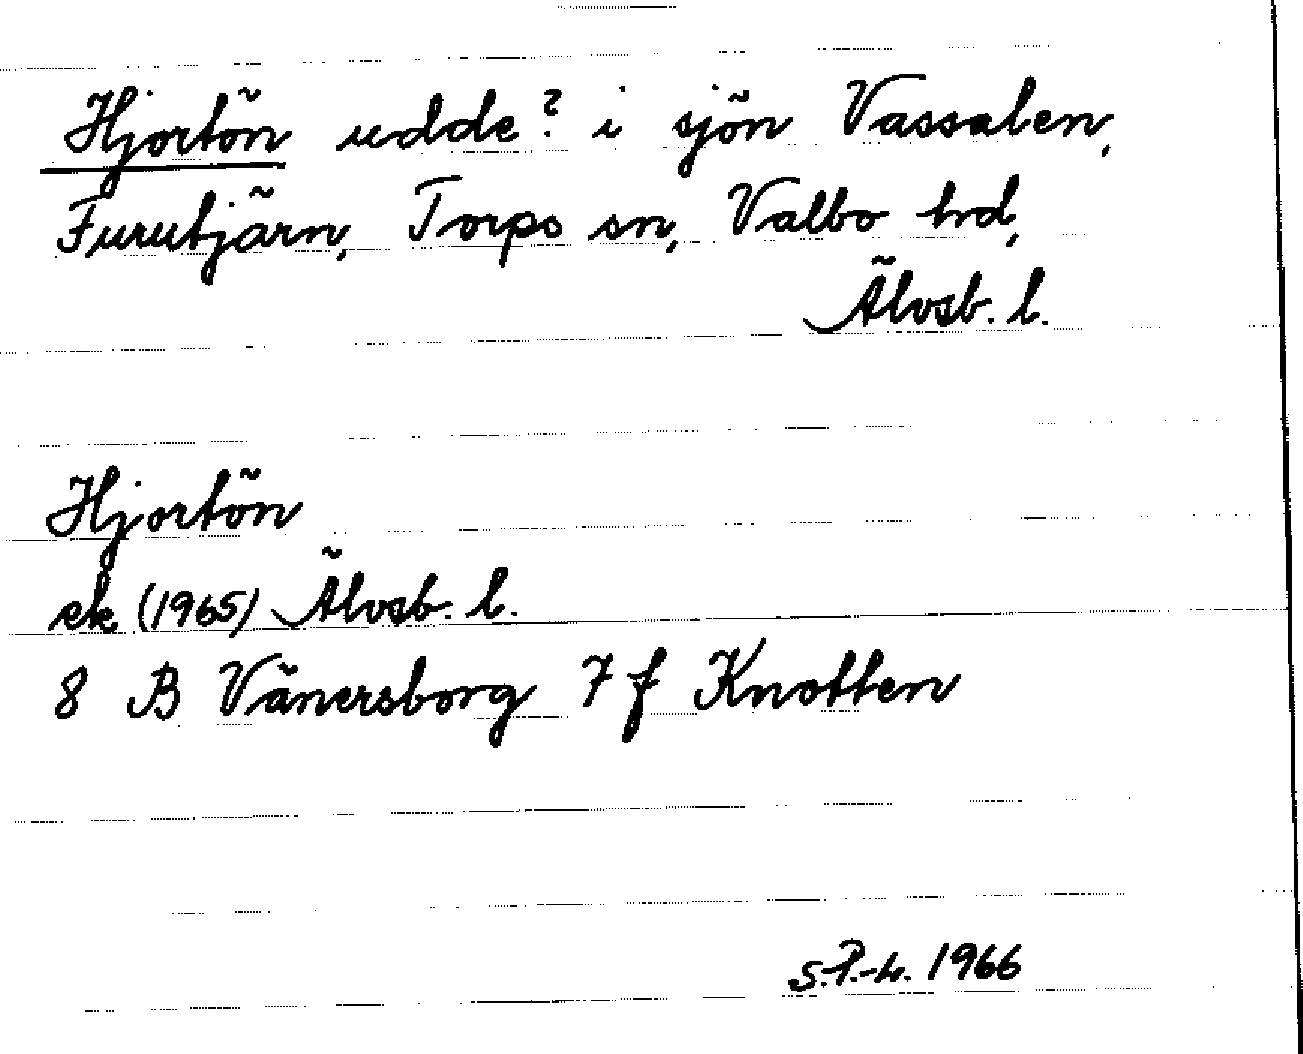 Hjortön udde? i sjön Vassalen,
Furutjärn, Torps sn, Valbo hd,
Älvsb. l.
Hjortön
ek (1965) Älvsb. l.
8 B Vänersborg 7 f Knotten
S.P.-L. 1966